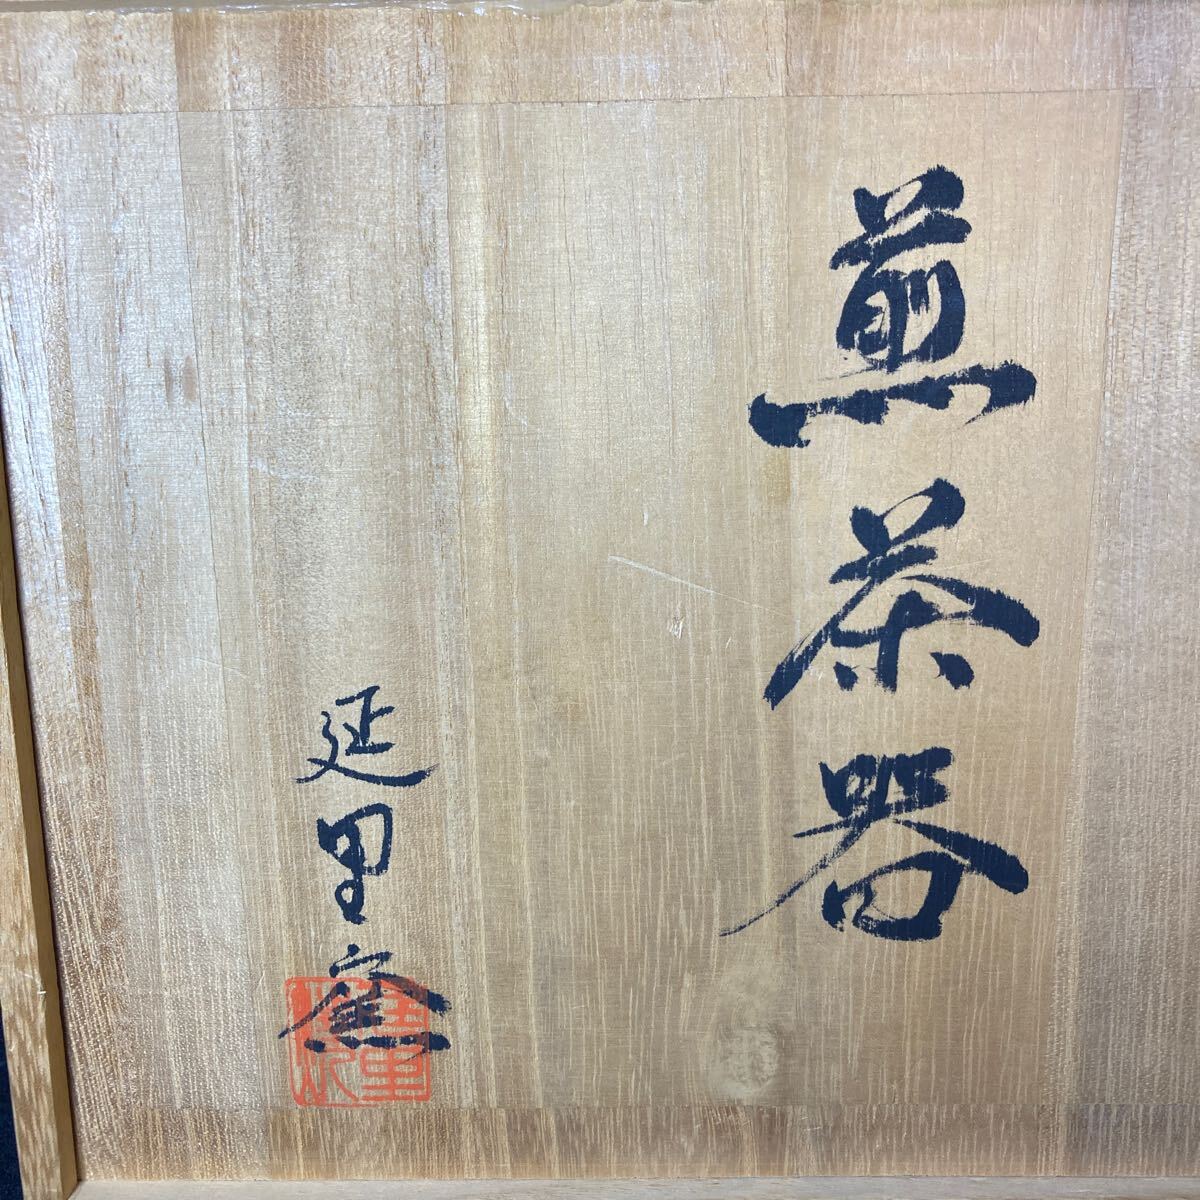 煎茶器
延里窯